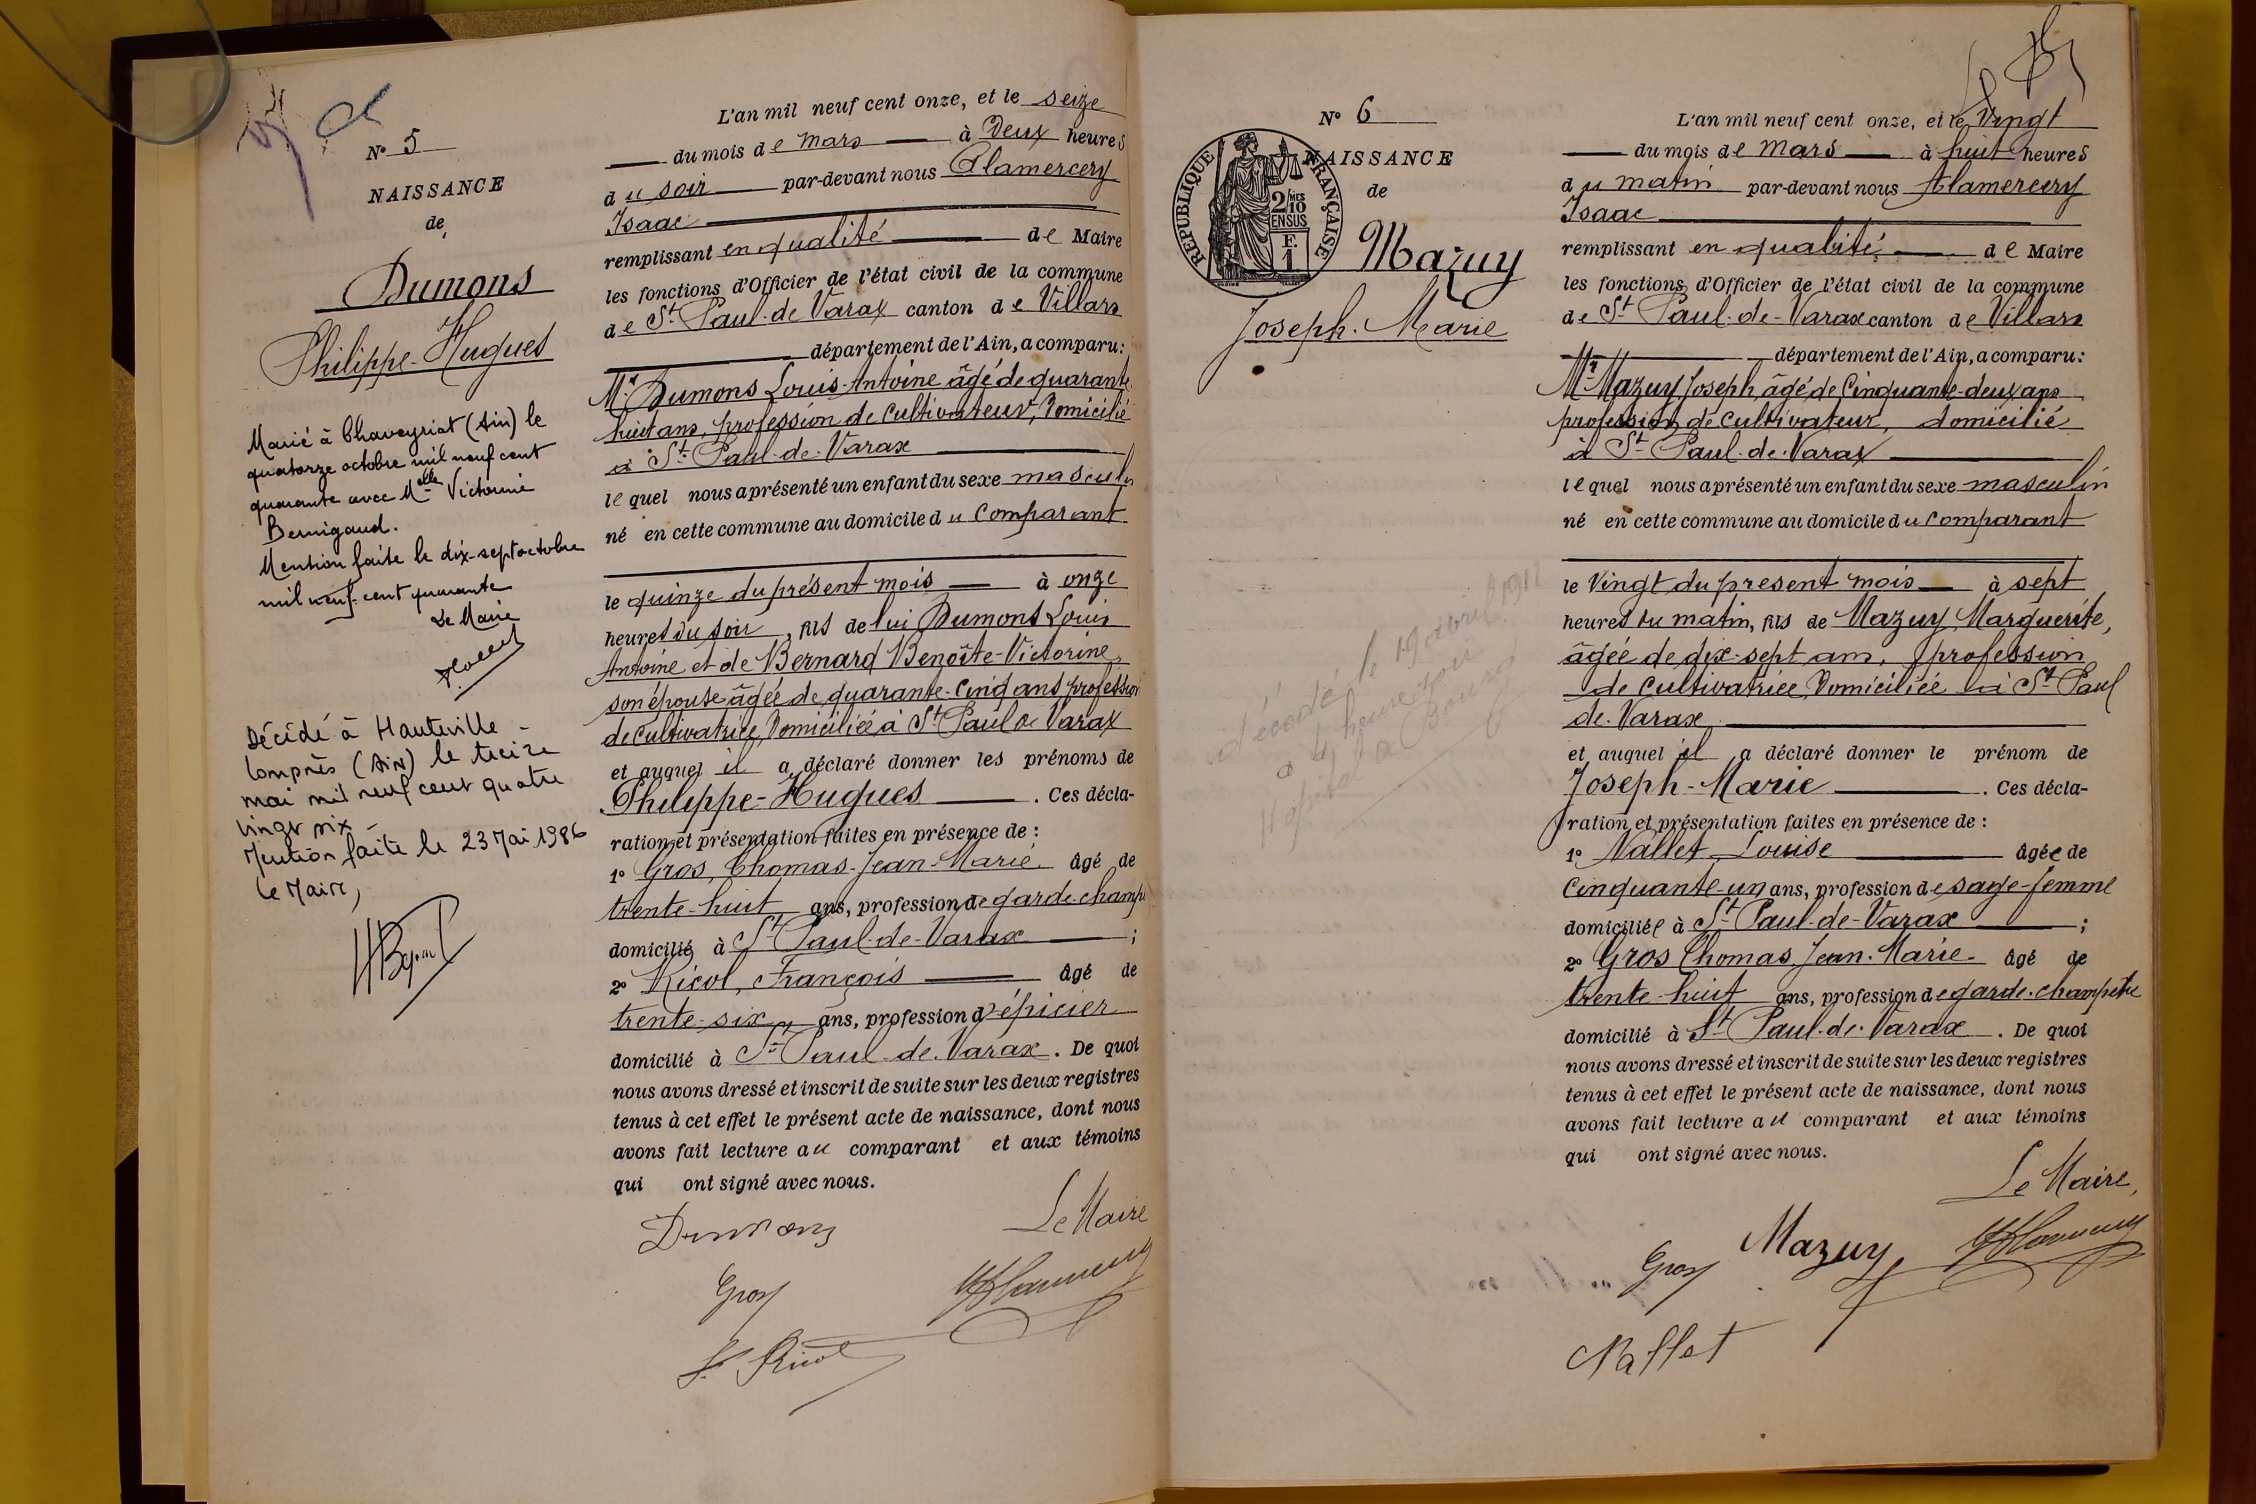 N° 5
NAISSANCE
de
Dumons
Philippe-Hugues
Marié à Chaveyriat (Ain) le
quatorze octobre mil neuf cent
quarante avec Melle Victorine
Bernigaud.
Mention faite le dix-sept octobre
mil neuf cent quarante
Le Maire
Décidé à Hauteville-
Lompnès (Ain) le treize
mai mil neuf cent quatre
vingt six
Mention faite le 23 Mai 1986
Le Maire,
L'an mil neuf cent onze, et le seize
du mois de mars à Deux heures
du soir par-devant nous Alamercery
Isaac
remplissant en qualité de Maire
les fonctions d'Officier de l'état civil de la commune
de St Paul-de-Varax canton de Villars
département de l'Ain, a comparu:
Mr Dumons Louis-Antoine âgé de quarante
huit ans, profession de Cultivateur, Domicilié
à St Paul-de-Varax
lequel nous a présenté un enfant du sexe masculin
né en cette commune au domicile du Comparant
le quinze du présent mois à onze
heures du soir, fils de lui Dumons Louis
Antoine et de Bernard Benoîte-Victorine,
son épouse âgée de quarante-cinq ans profession
de Cultivatrice, Domiciliée à St Paul de Varax
et auquel il a déclaré donner les prénoms de
Philippe-Hugues. Ces décla-
ration et présentation faites en présence de :
1° Gros, Thomas-Jean-Marie âgé de
trente-huit ans, profession de garde-champ
domicilié à St Paul-de-Varax ;
2° Ricol, François âgé de
trente-six ans, profession d'épicier
domicilié à St Paul-de-Varax. De quoi
nous avons dressé et inscrit de suite sur les deux registres
tenus à cet effet le présent acte de naissance, dont nous
avons fait lecture au comparant et aux témoins
qui ont signé avec nous.
Dumons Le Maire
Gros
F. Ricol
N° 6
NAISSANCE
de
RÉPUBLIQUE FRANÇAISE
2/10 MES
EN SUS
F.
1
Mazuy
Joseph-Marie
décédé le 19 avril 1911
à 4 heures soir
Hôpital à Bourg
L'an mil neuf cent onze, et le Vingt
du mois de mars à huit heures
du matin par-devant nous Alamercery
Isaac
remplissant en qualité de Maire
les fonctions d'Officier de l'état civil de la commune
de St Paul-de-Varax canton de Villars
département de l'Ain, a comparu:
Mr Mazuy Joseph, âgé de Cinquante-deux ans
profession de Cultivateur, domicilié
à St Paul-de-Varax
lequel nous a présenté un enfant du sexe masculin
né en cette commune au domicile du Comparant
le Vingt du présent mois à sept
heures du matin, fils de Mazuy Marguerite,
âgée de dix-sept ans, profession
de Cultivatrice, Domiciliée à St Paul
de-Varax
et auquel il a déclaré donner le prénom de
Joseph-Marie. Ces décla-
ration et présentation faites en présence de :
1° Nallet Louise âgée de
Cinquante-un ans, profession de sage-femme
domiciliée à St Paul-de-Varax ;
2° Gros Thomas, Jean-Marie- âgé de
trente-huit ans, profession de garde-champêtre
domicilié à St Paul-de-Varax. De quoi
nous avons dressé et inscrit de suite sur les deux registres
tenus à cet effet le présent acte de naissance, dont nous
avons fait lecture au comparant et aux témoins
qui ont signé avec nous.
Le Maire,
Gros Mazuy
Nallet